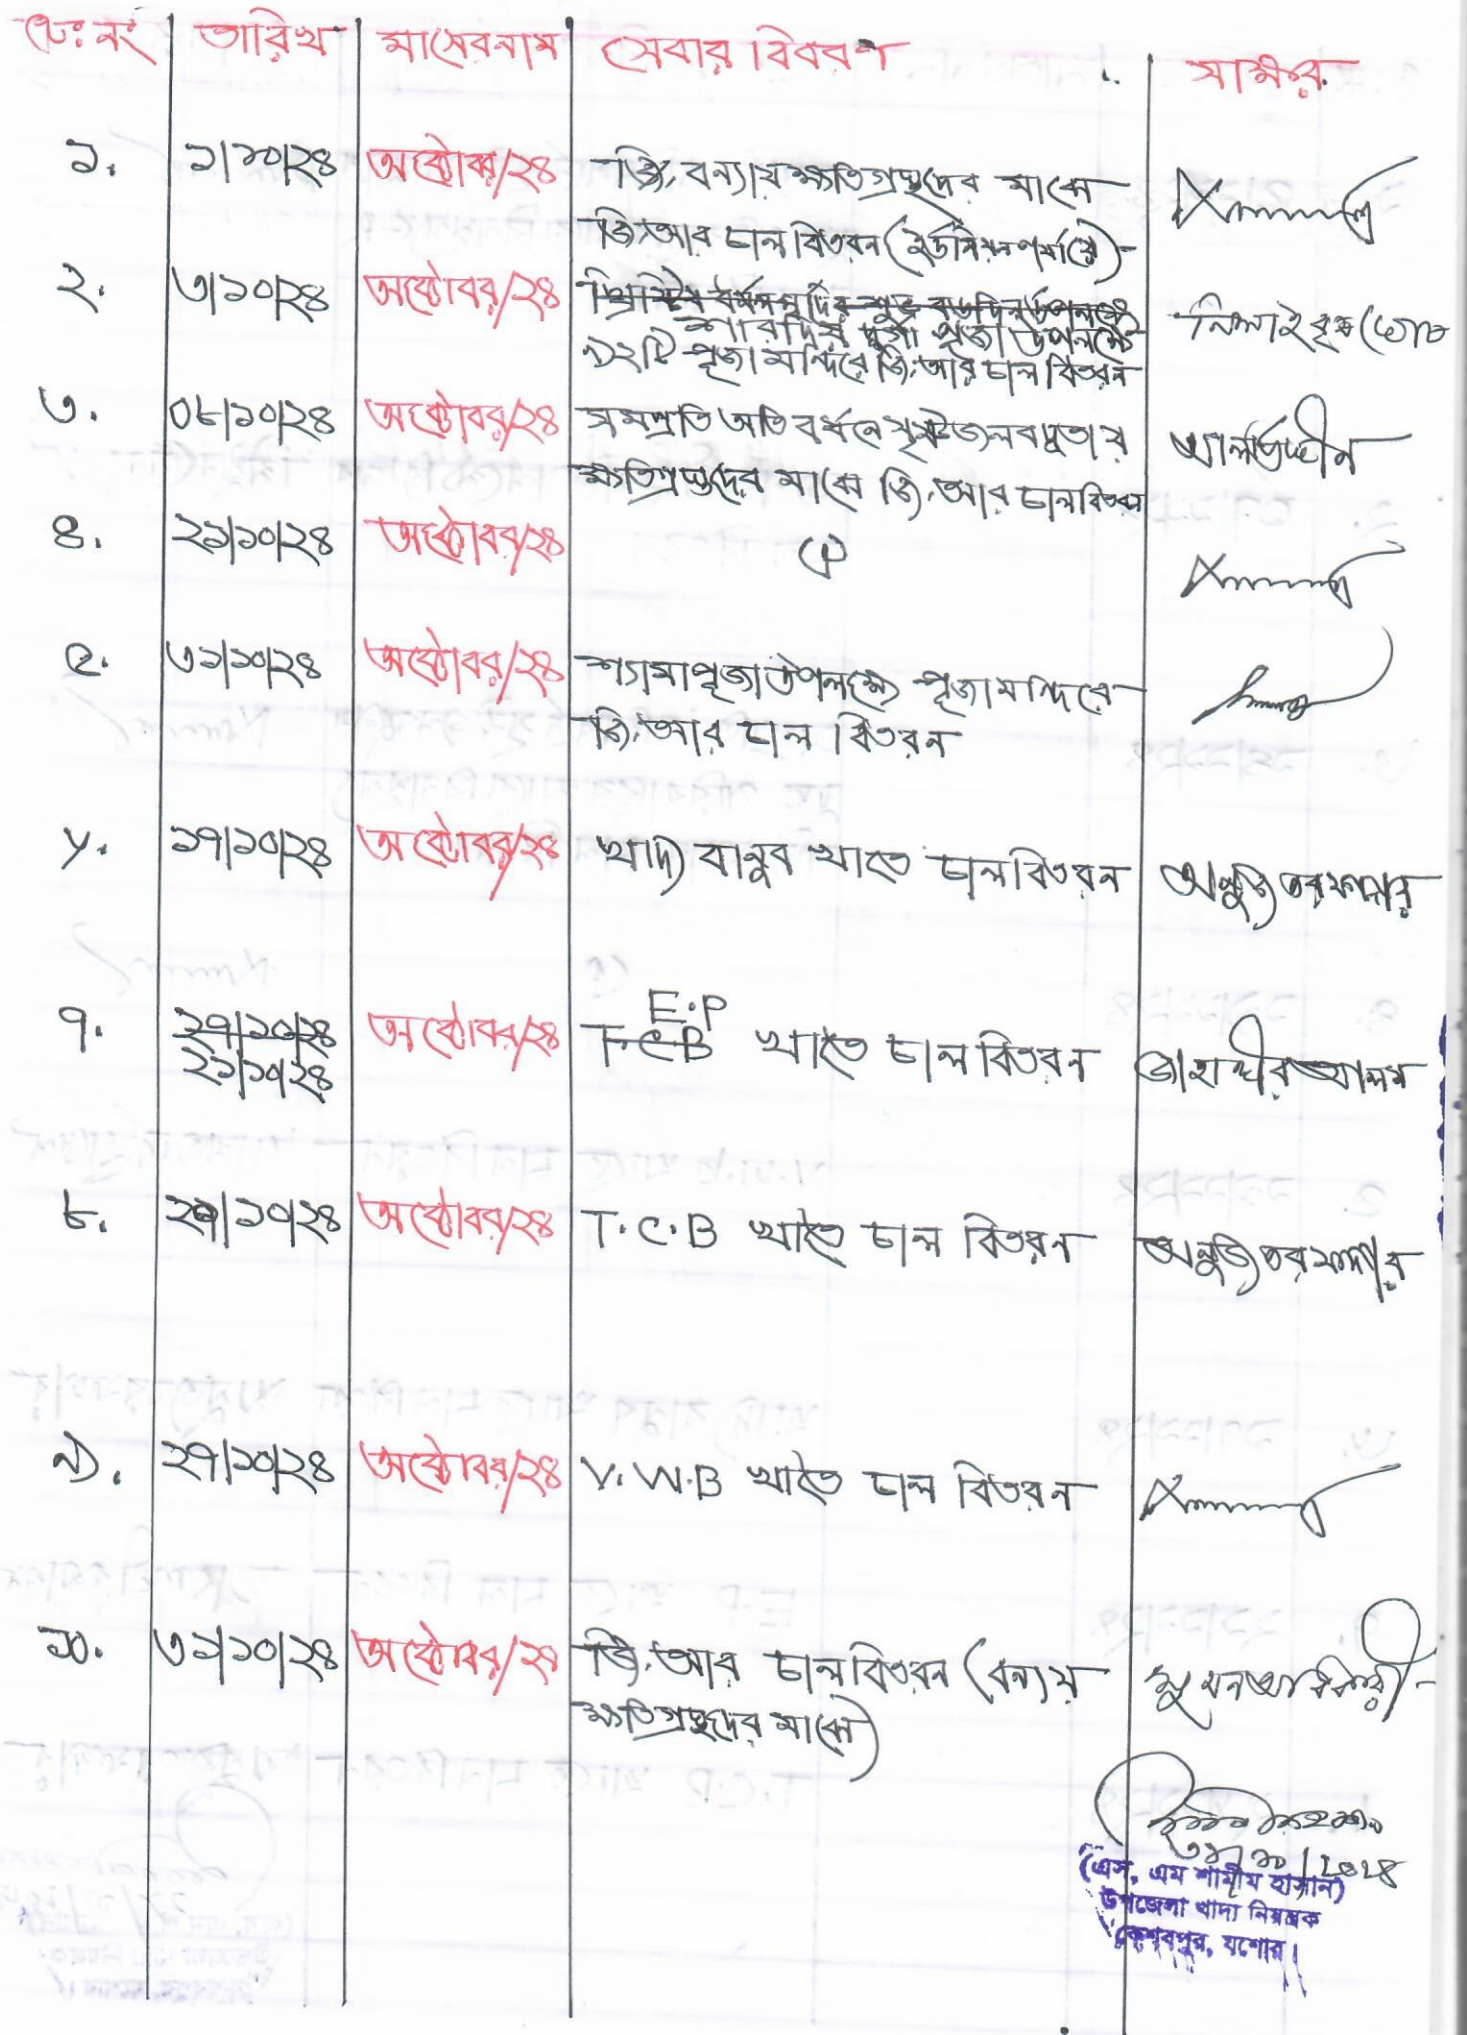 ক্রঃ নং তারিখ মাসের নাম সেবার বিবরণ সাক্ষর
১. ১/১০/২৪ অক্টোবর/২৪ জি, বন্যায় ক্ষতিগ্রস্থদের মাঝে
জি,আর চাল বিতরন (ইউনিয়ন পর্যায়ে)
২. ৩/১০/২৪ অক্টোবর/২৪
শারদিয় দুর্গা পূজা উপলক্ষে
৯২টি পূজা মন্দিরে জি,আর চাল বিতরন
৩. ০৮/১০/২৪ অক্টোবর/২৪ সমপ্রতি অতি বর্ষনে সৃষ্ট জলবদ্ধতায় আলাউদ্দীন
ক্ষতিগ্রস্তদের মাঝে জি,আর চাল বিতরন
৪. ২১/১০/২৪ অক্টোবর/২৪ ঐ
৫. ৩১/১০/২৪ অক্টোবর/২৪ শ্যামাপূজা উপলক্ষে পূজা মন্দিরে
জি,আর চাল বিতরন
৬. ১৭/১০/২৪ অক্টোবর/২৪ খাদ্য বান্ধব খাতে চাল বিতরন অনুজিত তরফদার
E.P
৭. ২৭/১০/২৪ অক্টোবর/২৪ T.C.B খাতে চাল বিতরন জাহাঙ্গীর আলম
২১/১০/২৪
৮. /১০/২৪ অক্টোবর/২৪ T.C.B খাতে চাল বিতরন অনুজিত তরফদার
৯. ২৭/১০/২৪ অক্টোবর/২৪ V.W.B খাতে চাল বিতরন
১০. ৩১/১০/২৪ অক্টোবর/২৪ জি,আর চাল বিতরন (বন্যায়
ক্ষতিগ্রস্থদের মাঝে)
৩১/১০/২০২৪
(এস, এম শামীম হাসান)
উপজেলা খাদ্য নিয়ন্ত্রক
কেশবপুর, যশোর।